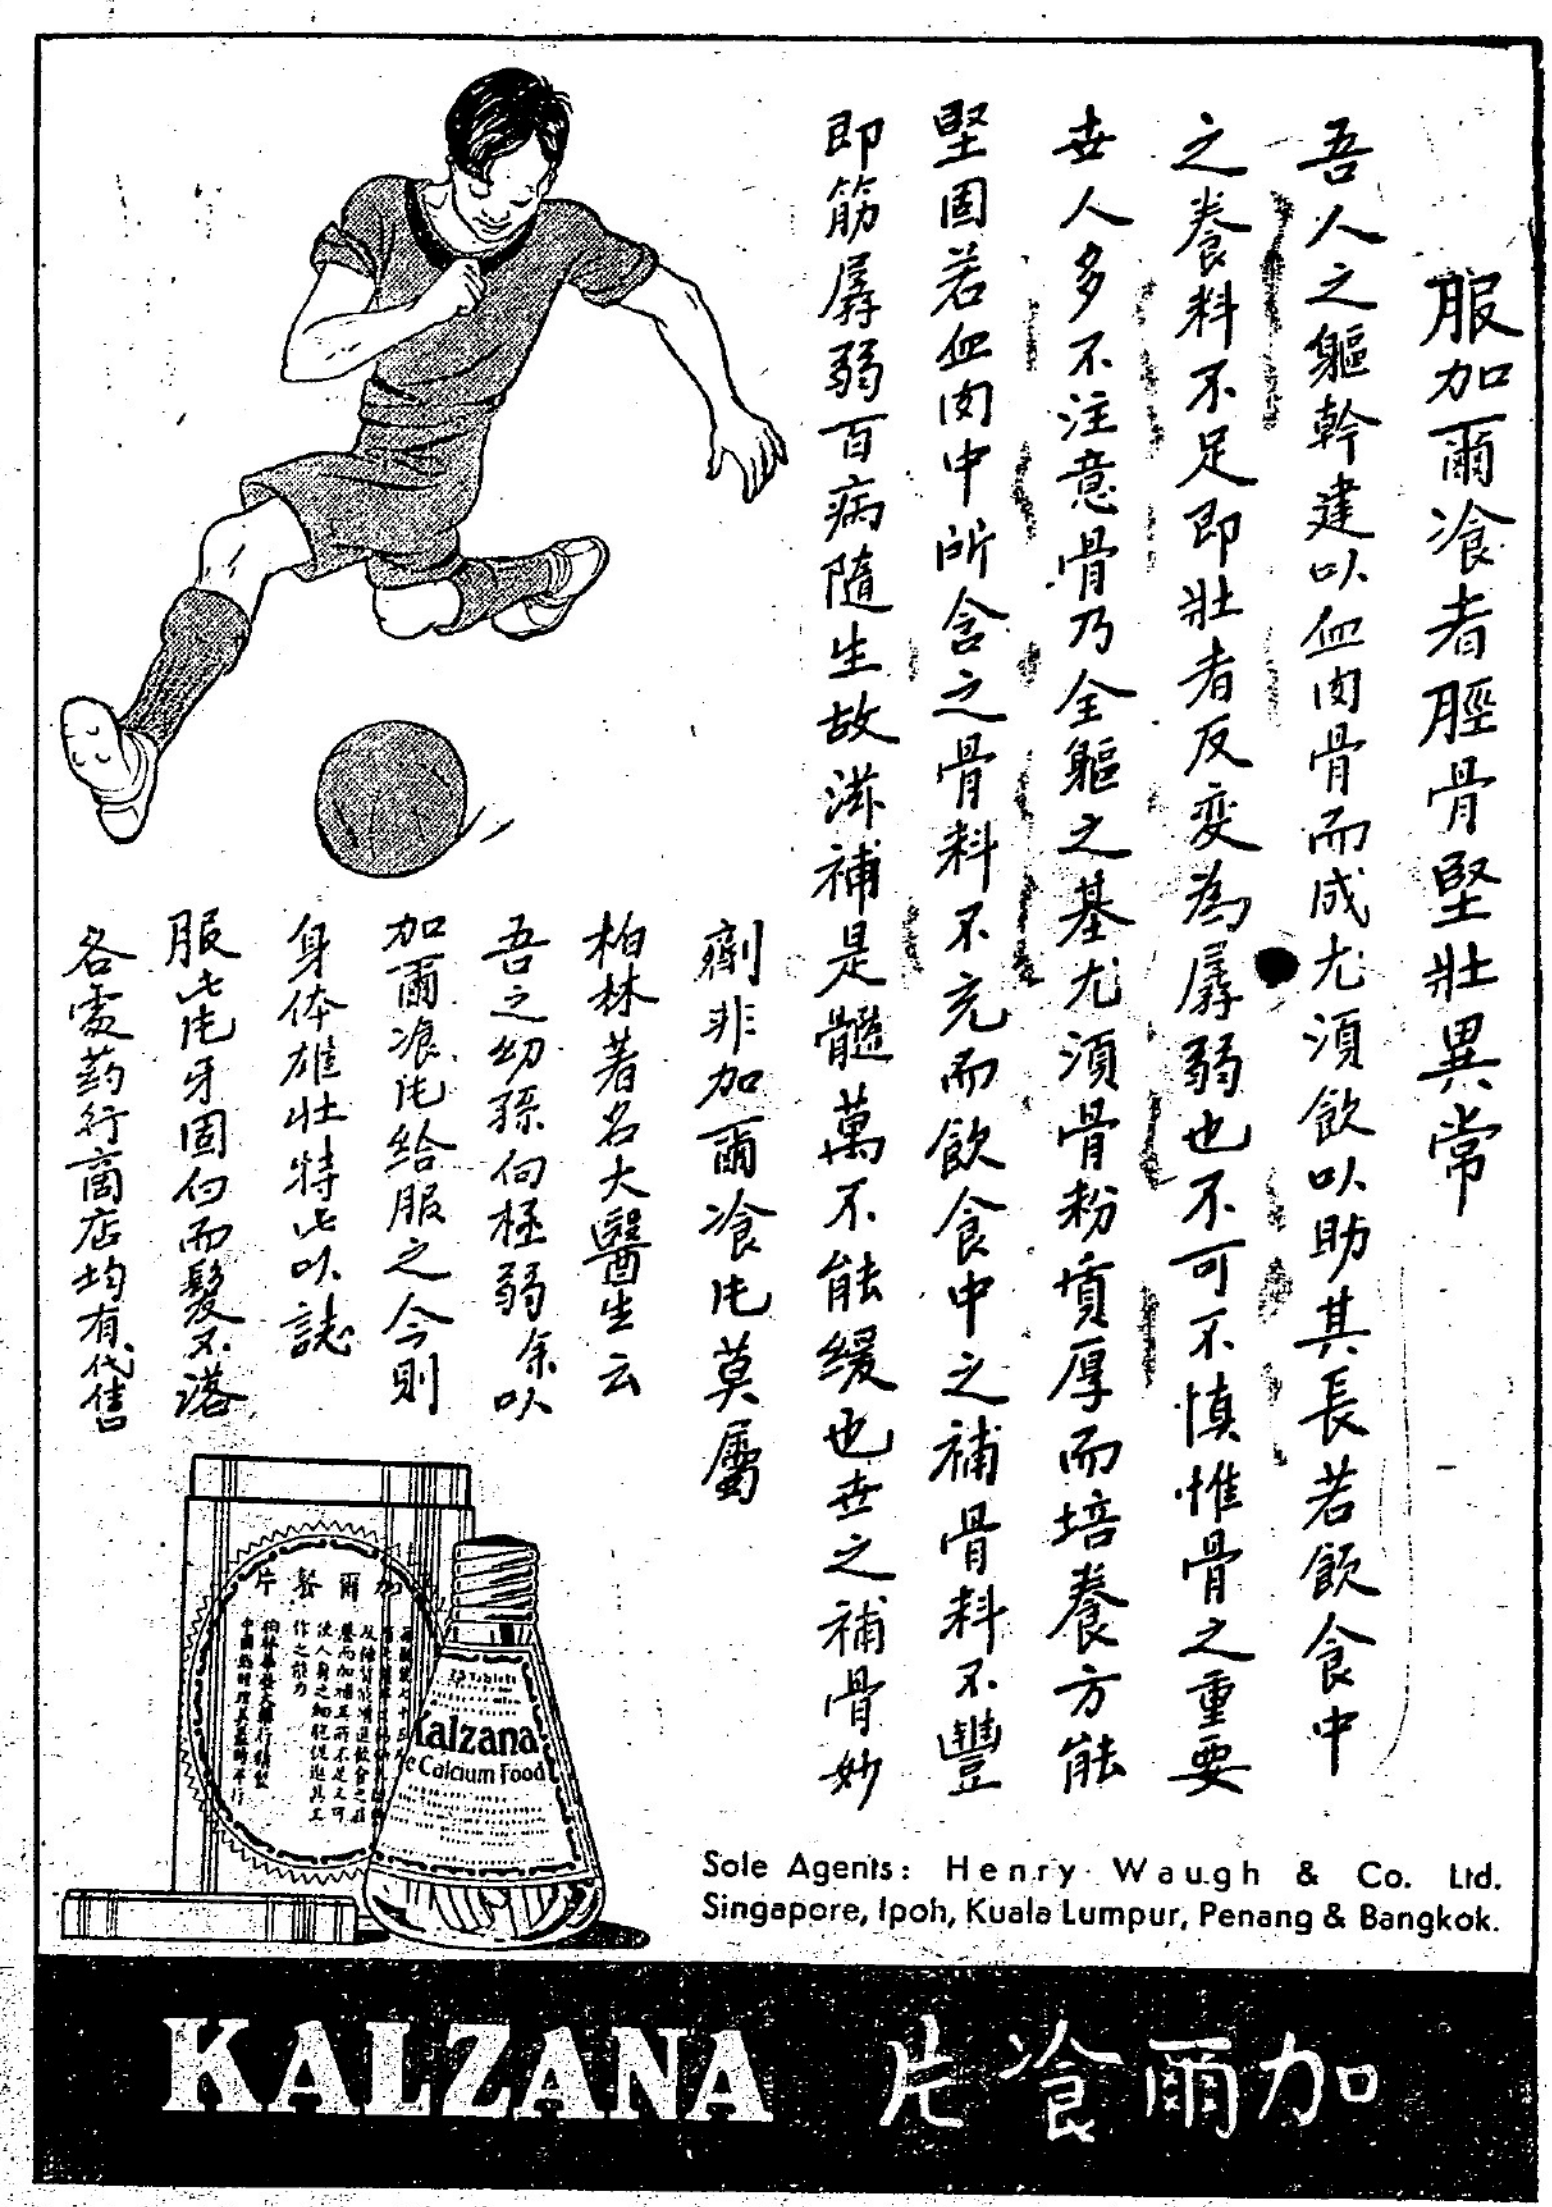 服加爾飡者脛骨堅壯異常
吾人之軀幹建以血肉骨而成尤須飲以助其長若飲食中
之養料不足即壯者反変為孱弱也不可不慎惟骨之重要
世人多不注意骨乃全軀之基尤須骨粉墳厚而培養方能
堅固若血肉中所含之骨料不充而飲食中之補骨料不豐
即筋孱弱百病隨生故滋補是髓萬不能缓也世之補骨妙
劑非加爾飡片莫屬
柏林著名大醫生云
吾之幼孫向極弱余以
加爾飡片給服之今則
身体雄壯特此以誌
服此片牙固白而髮不落
各處药行商店均有代售
加爾餐片
Kalzana
Calcium Food
Sole Agents: Henry Waugh & Co. Ltd.
Singapore, Ipoh, Kuala Lumpur, Penang & Bangkok.
KALZANA 片飡爾加